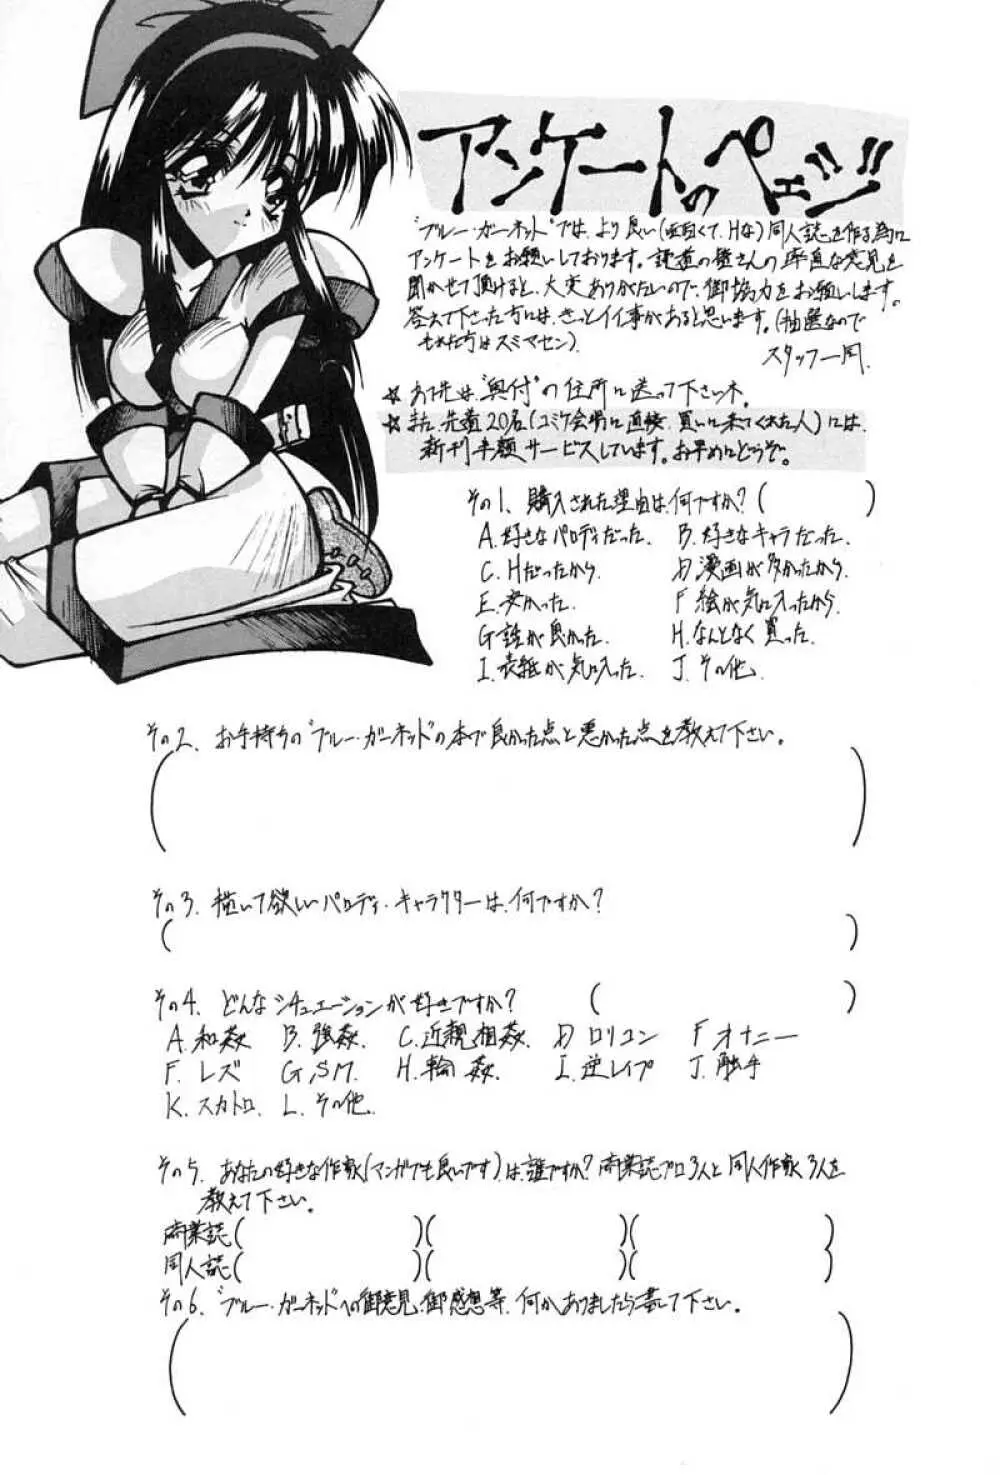 アンケートのページ
"ブルー・ガーネット"では、より良い(面白くて、Hな)同人誌を作る為に
アンケートをお願いしております。読者の皆さんの率直な意見を
聞かせて頂けると、大変ありがたいので、御協力をお願いします。
答えて下さった方には、きっとイイ事があると思います。(抽選なので
もれた方はスミマセン)
スタッフ一同.
☆ あて先は、"奥付"の住所に送って下さいネ。
☆ また、先着20名(コミケ会場に直接、買いに来てくれた人)には、
新刊半額サービスしています。お早めにどうぞ。
その1. 購入された理由は、何ですか?( )
A.好きなパロディだった. B.好きなキャラだった.
C.Hだったから. D漫画が多かったから.
E.安かった. F絵が気に入ったから.
G話が良かった. H.なんとなく買った.
I.表紙が気に入った. J.その他.
その2、お手持ちの"ブルー・ガーネット"の本で良かった点と悪かった点を教えて下さい。
( )
その3. 描いて欲しいパロディ・キャラクターは、何ですか?
( )
その4、どんなシチュエーションが好きですか? ( )
A.和姦 B.強姦. C.近親相姦. D ロリコン F オナニー
F.レズ G,SM. H.輪姦. I.逆レイプ J.触手
K.スカトロ. L.その他.
その5. あなたの好きな作家(マンガでも良いです)は、誰ですか?商業誌プロ3人と同人作家3人を
教えて下さい。
商業誌( )( )( )
同人誌( )( )( )
その6."ブルー・ガーネット"への御意見、御感想等、何かありましたら書いて下さい。
( )